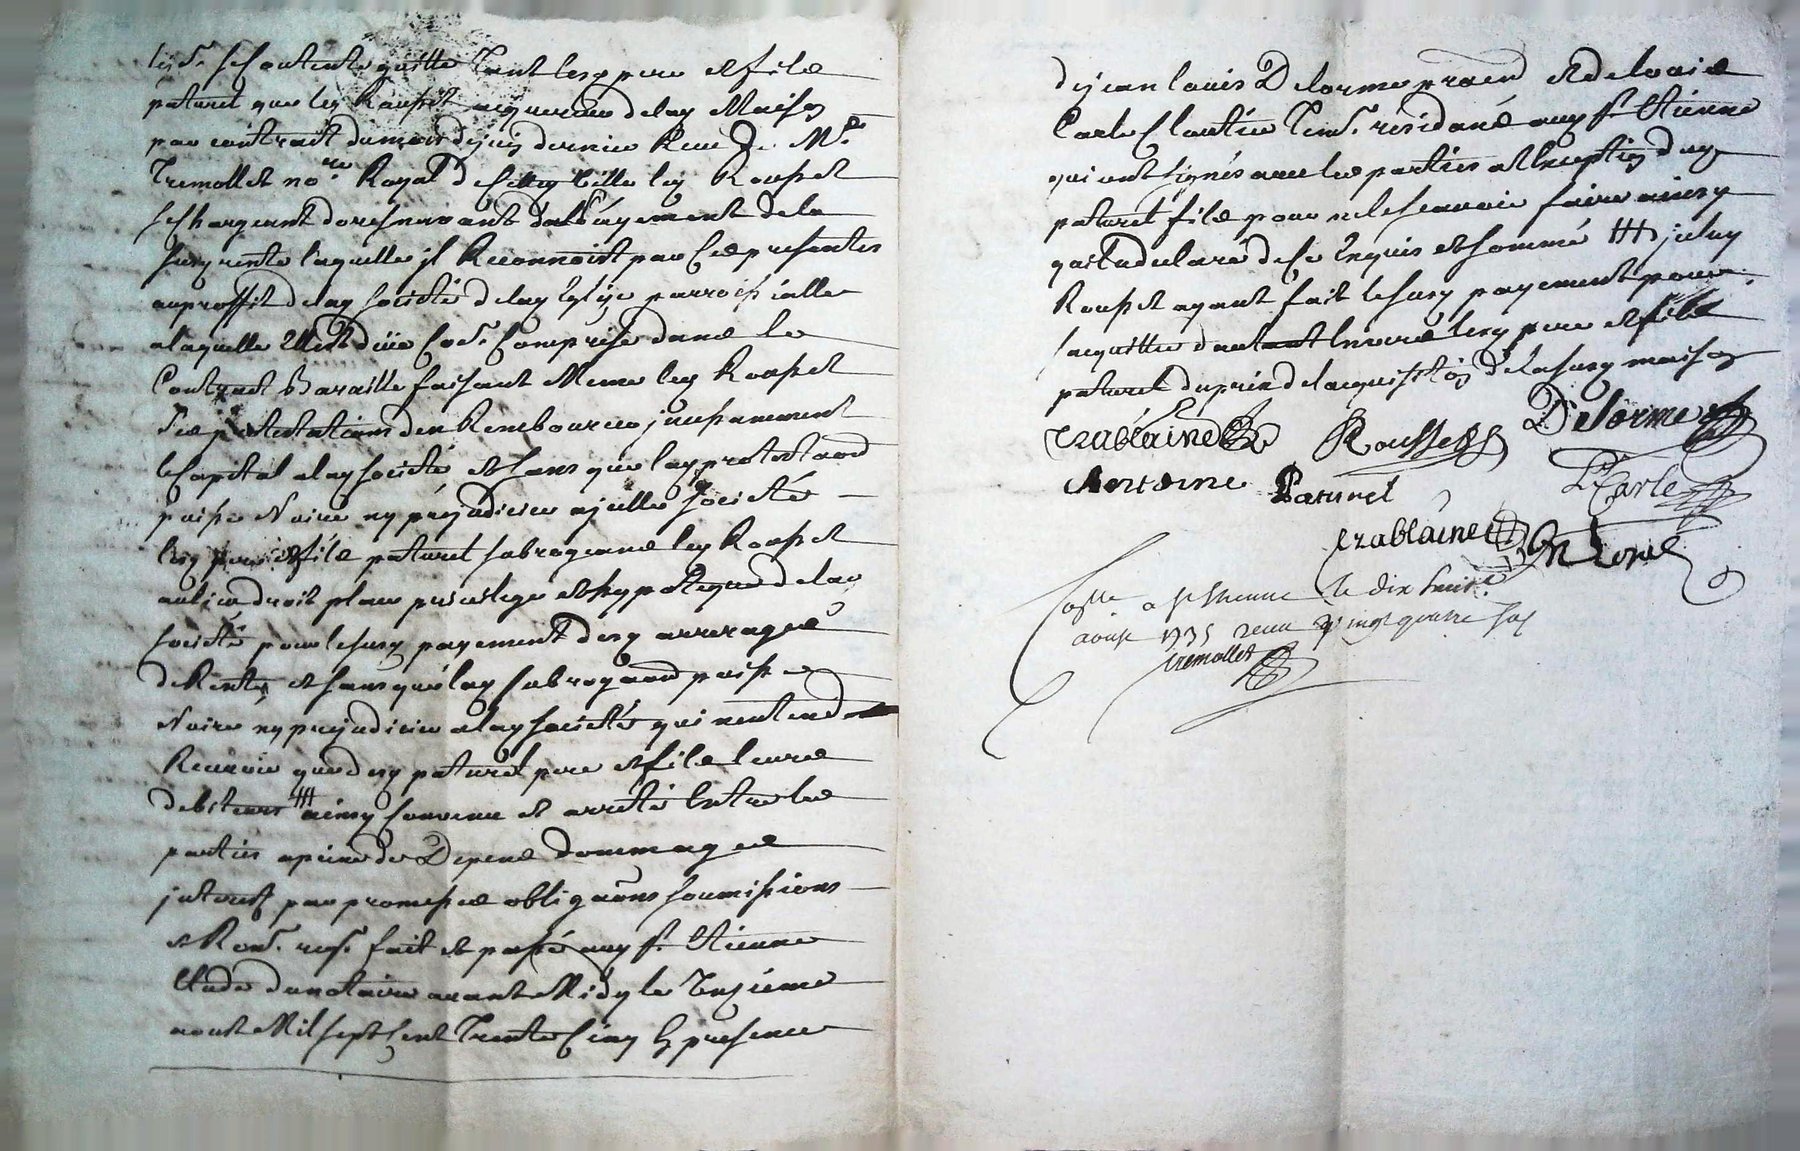 se Contente quitte tant lesd pere et fils
paturel que led Rousset acquereur de lad Maison
par contrait du mois de juin dernier Receu Me
Tremollet nore Royal de cette ville led Rousset
se chargeant doresnavant du payement de la
susd rente laquelle jl Reconnoist par ces presentes
au proffit de lad societé de lad Eglize parroissialle
a laquelle elle est düe Comprise dans le
Contract Baraille faisant Mesme led Rousset
protestations den Rembourcer jncessamment
le Capital a lad societé et sans que lad protestaon
puisse Nuire ny préjudicier a jcelle societté
lesd pere et fils paturel subrogeans led Rousset
au lieu droit place privilege et hypoteque de lad
societé pour le susd payement desd arrerages
de Rente et sans que lad subrogaon puisse
Nuire ny prejudicier a lad societé qui nentend
Recevoir que desd paturel pere et fils leurs
debiteurs ainsy convenu et arreté Entre les
parties a peine de Depens dommages
jnterest par promesses obligaons soumissions
et Ron. fait et passé aud St. Etienne
Etude du notaire avant Midy le Treziéme
aoust Mil sept Cent Trente Cinq En presence
de jean louis Delorme et de louis
Carle Clautier resid aud St Etienne
qui ont signés avec les parties a lexception dud
paturel fils pour ne le scavoir faire ainsy
quil a declaré de ce Enquis et sommé jceluy
Rousset ayant fait le susd payement pour
sacquitter dautant Envers lesd pere et fils
paturel du prix de lacquisition de la susd maison
Crablainer Rousset Delorme
Antoine Paturel L Carle
Crablainet
Collé a St Etienne le dix huit
aoust 1735 receu vingt quatre sols
tremollet